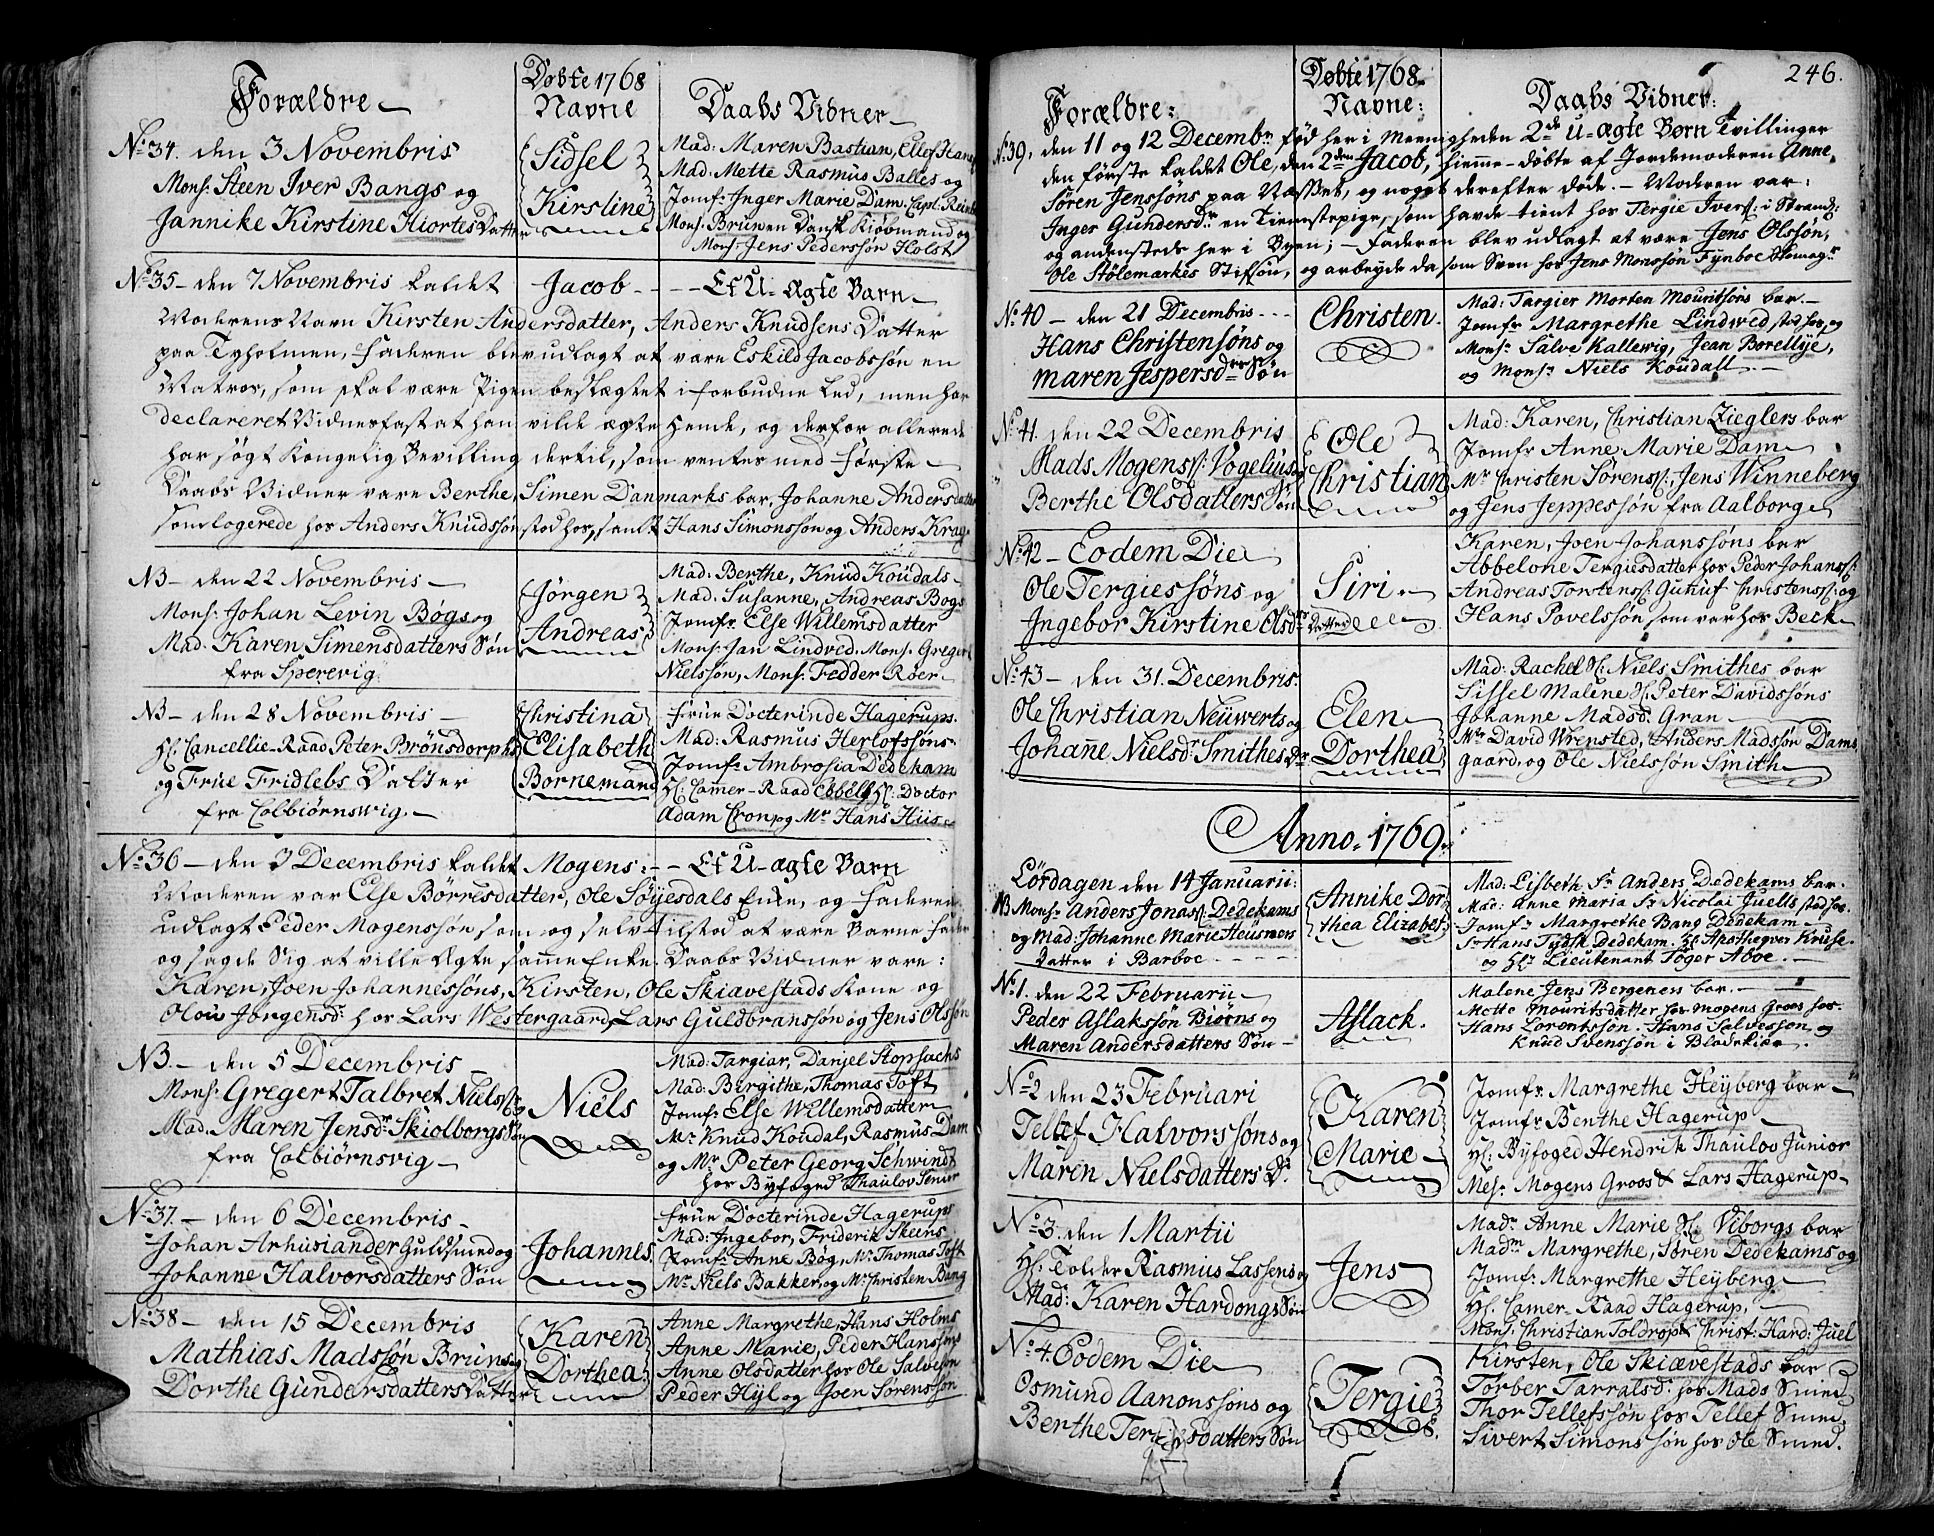 Forældre
Døbte 1768
Navne
Daabs Vidner
No. 34. den 3 Novembris
Mons. Steen Iver Bangs og
Jannike Kirstine Hiortes Datter
Sidsel
Kirstine
Mad: Maren Bastian, Ellef
Mad: Mette Rasmus Balles og
Jomfr: Inger Marie Dam. Capt:
Mons: Bruun en Dansk Kiøbmand og
Mons: Jens Pederssøn Holst
No. 35 - den 7 Novembris kaldet Jacob - - Et U-ægte Barn
Moderens Navn Kirsten Andersdatter, Anders Knudsens Datter
paa Tyholmen, Faderen blev udlagt at være Eskild Jacobssøn en
Matros, som skal være Pigen beslægtet i forbudne Led, men har
declareret Vidnefast at han vilde ægte Hende, og derfor allerede
har søgt Kongelig Bevilling dertil, som ventes med første
Daabs Vidner vare Berthe, Simen Danmarks bar, Johanne Andersdatter
som logerede hos Anders Knudssøn stod hos, samt Hans Simonssøn og Anders Krag
NB - den 22 Novembris
Mons: Johan Levin Bøgs og
Mad. Karen Simensdatters Søn
fra Sperevig
Jørgen
Andreas
Mad: Berthe, Knud Koudals
Mad: Susanne, Andreas Bøgs
Jomfr: Else Willemsdatter
Mons: Jan Lindved. Mons: Gregert
Nielssøn, Mons: Fedder Røer
NB - den 28 Novembris
Hl: Cancellie-Raad Peter Brønsdorphs
og Frue Fridlebs Datter
fra Colbiørnswig
Christina
Elisabeth
Bornemand
Frue Docterinde Hagerups.
Mad: Rasmus Herlofssøns
Jomfr: Ambrosia Dedekam
Hl: Camer-Raad Ebbel, Hl: Doctor
Adam Cron og Mr Hans Huus
No. 36 - den 3 Decembris kaldet Mogens: - - Et U-ægte Barn
Moderen var Else Børresdatter, Ole Søyesdals Enke, og Faderen
udlagt Peder Mogenssøn som og selv tilstod at være Barne Fader
og sagde Sig at ville Ægte samme Enke. Daabs Vidner vare:
Karen, Joen Johannessøns, Kirsten, Ole Skiævestads Kone og
Olou Jørgensd: hos Lars Westergaard, Lars Guldbranssøn og Jens Olssøn
NB. - den 5 Decembris
Mons: Gregert Talbret Niels
Mad. Maren Jensd: Skiolborgs Søn
fra Colbiørnsvig
Niels
Mad: Targiar, Daniel Stopsachs
Mad: Birgithe, Thomas Toft
Jomfr: Else Willemsdatter
Mr Knud Koudal, Rasmus Dam
og Mr Peter Georg Schwindt
hos Byfoged Thaulov Senior
No. 37. - den 6 Decembris
Johan Arhusiander Guldsmed og
Johanne Halvorsdatters Søn
Johannes.
Frue Docterinde Hagerups
Mad: Ingebor, Friderik Skeens
Jomfr: Anne Bøg, Mr Thomas Toft
Mr Niels Bakker, og Mr Christen Bang
No. 38 - den 15 Decembris
Mathias Madssøn Bruns og
Dorthe Gundersdatters Datter
Karen
Dorthea
Anne Margrethe, Hans Holms
Anne Marie, Peder Hanssøns
Anne Olsdatter hos Ole Salvesøn
Peder Hyl og Joen Sørenssøn
246.
Forældre:
Døbte 1768
Navne:
Daabs Vidner:
No. 39, den 11 og 12 Decembr fød her i Meenigheden 2de U-ægte Børn Tvillinger
den første kaldet Ole, den 2den Jacob, hiemme-døbte af Jordemoderen Anne,
Søren Jenssøns paa Næsset, og noget derefter døde. - Moderen var:
Inger Gundersdr en Tienestepige, som havde tient hos Tergie Ivers: i Strand:
og andenstede her i Byen; - Faderen blev udlagt at være Jens Olssøn,
Ole Stølemarkes Stifsøn, og arbeyde da som Sven hos Jens Monssøn Fynboe Skomagr
No. 40 - den 21 Decembris
Hans Christensøns og
Maren Jespersdrs Søn
Christen.
Mad: Targier Morten Mouritsøns bar.
Jomfr Margrethe Lindwed stod hos, og
Monsr Salve Kallewig, Jean Borellye,
og Monsr Niels Koudall.
No. 41. den 22 Decembris
Mads Mogenss: Vogelius og
Berthe Olsdatters Søn
Ole
Christian
Mad: Karen, Christian Zieglers bar
Jomfr Anne Marie Dam
Mr Christen Sørenss:, Jens Winneberg
og Jens Jeppessøn fra Aalborg
No. 42 - Eodem Die
Ole Tergiessøns og
Ingebor Kirstine Olsdrs Datter
Siri
Karen, Joen Johanssøns bar
Abbelone Tergiesdatter hos Peder Johanss:
Andreas Torstenss: Christenss: og
Hans Povelssøn som var hos Beck
No. 43 - den 31. Decembris.
Ole Christian Neüwerts og
Johanne Nielsdr Smithes Dr
Elen
Dorthea
Mad: Rachel Sl: Niels Smithes bar
Sissel Malene Sl: Peter Davidssøns
Johanne Madsd: Gran
Mr David Wrensted, Anders Madssøn Dams
gaard, og Ole Nielssøn Smith
Anno. 1769.
Lördagen den 14 Januarii:
NB Monsr Anders Jonass: Dedekams
og Mad: Johanne Marie Heusmers
Datter i Barboe
Annike Dor
thea Elizabet:
Mad: Lisbeth Sr Anders Dedekams bar.
Mad: Anne Maria Sr Nicolai Juells stod hos.
Jomfr Margrethe Bang Dedekam
Sr Hans Tydsk Dedekam. Hl Apotheqver Kruse.
og Hlr Lieutenant Töger Aboe.
No. 1. den 22 Februarii
Peder Aslakssøn Biørns og
Maren Andersdatters Søn
Aslack.
Malene Jens Bergenens bar.
Mette Mouritsdatter hos Mogens Groos hos.
Hans Lorentssön. Hans Salvessön, og
Knud Svenssön i Blødekiær.
No. 2 den 23 Februari
Tellef Halvorssøns og
Maren Nielsdatters Dr
Karen
Marie
Jomfr: Margrethe Heyberg bar
Jomfr: Benthe Hagerup
Hl: Byfoged Hendrik Thaulov Junior
Mesr: Mogens Groos & Lars Hagerup
No. 3. den 1 Martii
Hl: Tolder Rasmus Lassens og
Mad: Karen Hardongs Søn
Jens
Madm Anne Marie Sl: Viborgs bar
Madm Margrethe, Søren Dedekams og
Jomfr: Margrethe Heyberg
Hl: Camer-Raad Hagerup,
Mons: Christian Toldrop & Christ: Hard: Juel
No. 4. Eodem Die
Osmund Aanonssøns og
Berthe Tergiesdatters Søn
Tergie
Kirsten, Ole Skiævestads bar
Torber Tarralsd: hos Mads Smed
Thor Tellefssøn hos Tellef Smed.
Sivert Simonssøn hos Ole Smed.